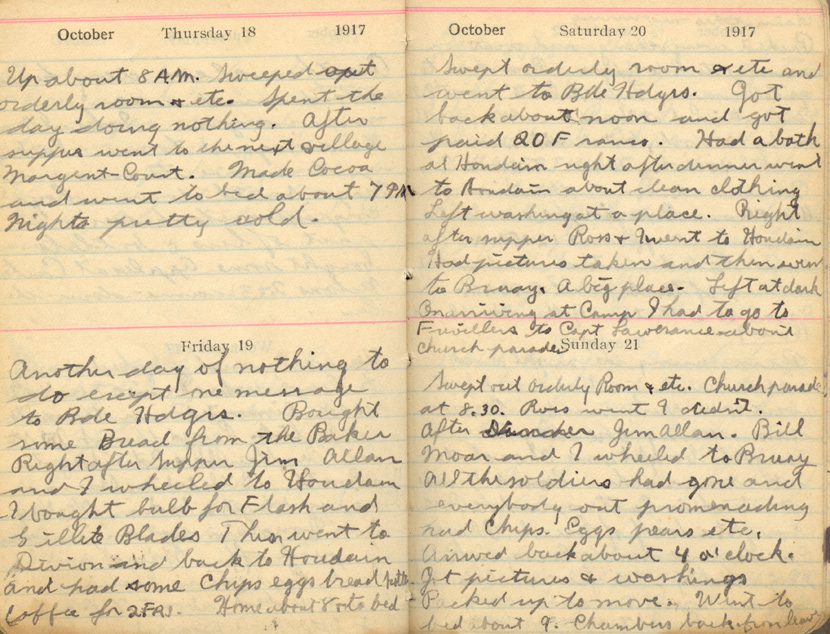 October Thursday 18 1917
Up about 8 AM. Sweeped out
orderly room & etc. Spent the
day doing nothing. After
supper went to the next village
Margent-Court. Made Cocoa
and went to bed about 7 PM
Nights pretty cold.
Friday 19
Another day of nothing to
do except one message
to Bde Hdqrs. Bought
some Bread from the Baker
Right after supper Jim Allan
and I wheeled to Houdain
I bought bulb for Flash and
Gillete Blades Then went to
Divion and back to Houdain
and had some Chips eggs bread
Coffee for 2 FRS. Home about 8 or to bed
October Saturday 20 1917
Swept orderly room & etc and
went to Bde Hdqrs. Got
back about noon and got
paid 20 Francs. Had a bath
at Houdain right after dinner went
to Houdain about clean clothing
Left washing at a place. Right
after supper Ross & I went to Houdain
Had pictures taken and then went
to Bruay. A big place. Left at dark
On arriving at Camp I had to go to
to Capt Lawerance about
Church parade
Sunday 21
Swept out orderly Room & etc. Church parade
at 8.30. Ross went I didn't.
After Jim Allan. Bill
Moar and I wheeled to Bruay
All the soldiers had gone and
everybody out promenading
had Chips. Eggs pears etc.
Arrived back about 4 o'clock.
Got pictures & washings
Packed up to move. Went to
bed about 9. Chambers back from leave